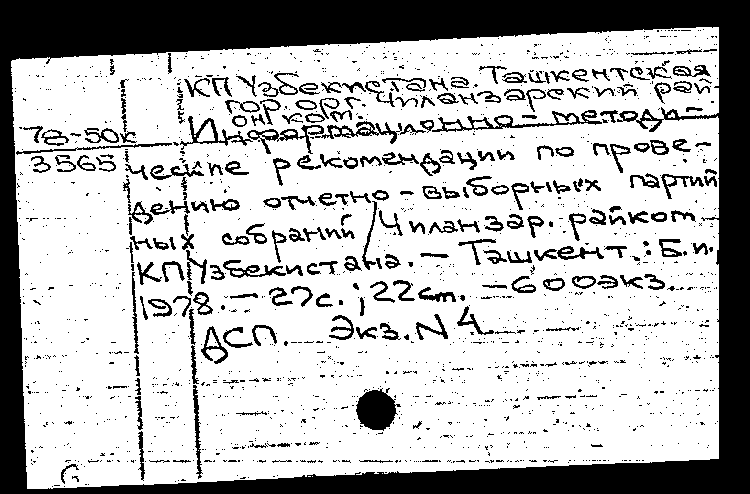 КП Узбекистана. Ташкентская
гор. орг. Чиланзарский рай-
он. ком.
78-50к Информационно-методи-
3565 ческие рекомендации по прове-
дению отчетно-выборных партий
ных собраний / Чиланзар. райком
КП Узбекистана. — Ташкент.: Б.и.,
1978. — 27с.; 22см. — 600экз.
ДСП. Экз. N 4